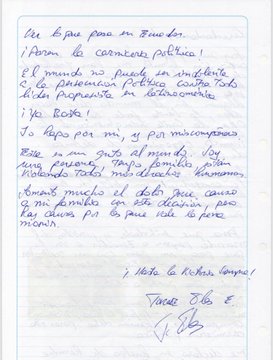 Ver lo que pasa en Ecuador.
¡Paren, la carnicería política!
El mundo no puede ser indolente
a la persecución política contra todo
líder progresista en latinoamérica
¡Ya Basta!
Lo hago por mi, y por mis compañeros
Este es un grito al mundo. Soy
una persona, tengo familia, están
violando todos mis derechos humanos.
Lamento mucho el dolor que causo
a mi familia con esta decisión, pero
hay causas por las que vale la pena
morir.
¡Hasta la Victoria Siempre!
Jorge Glas E.